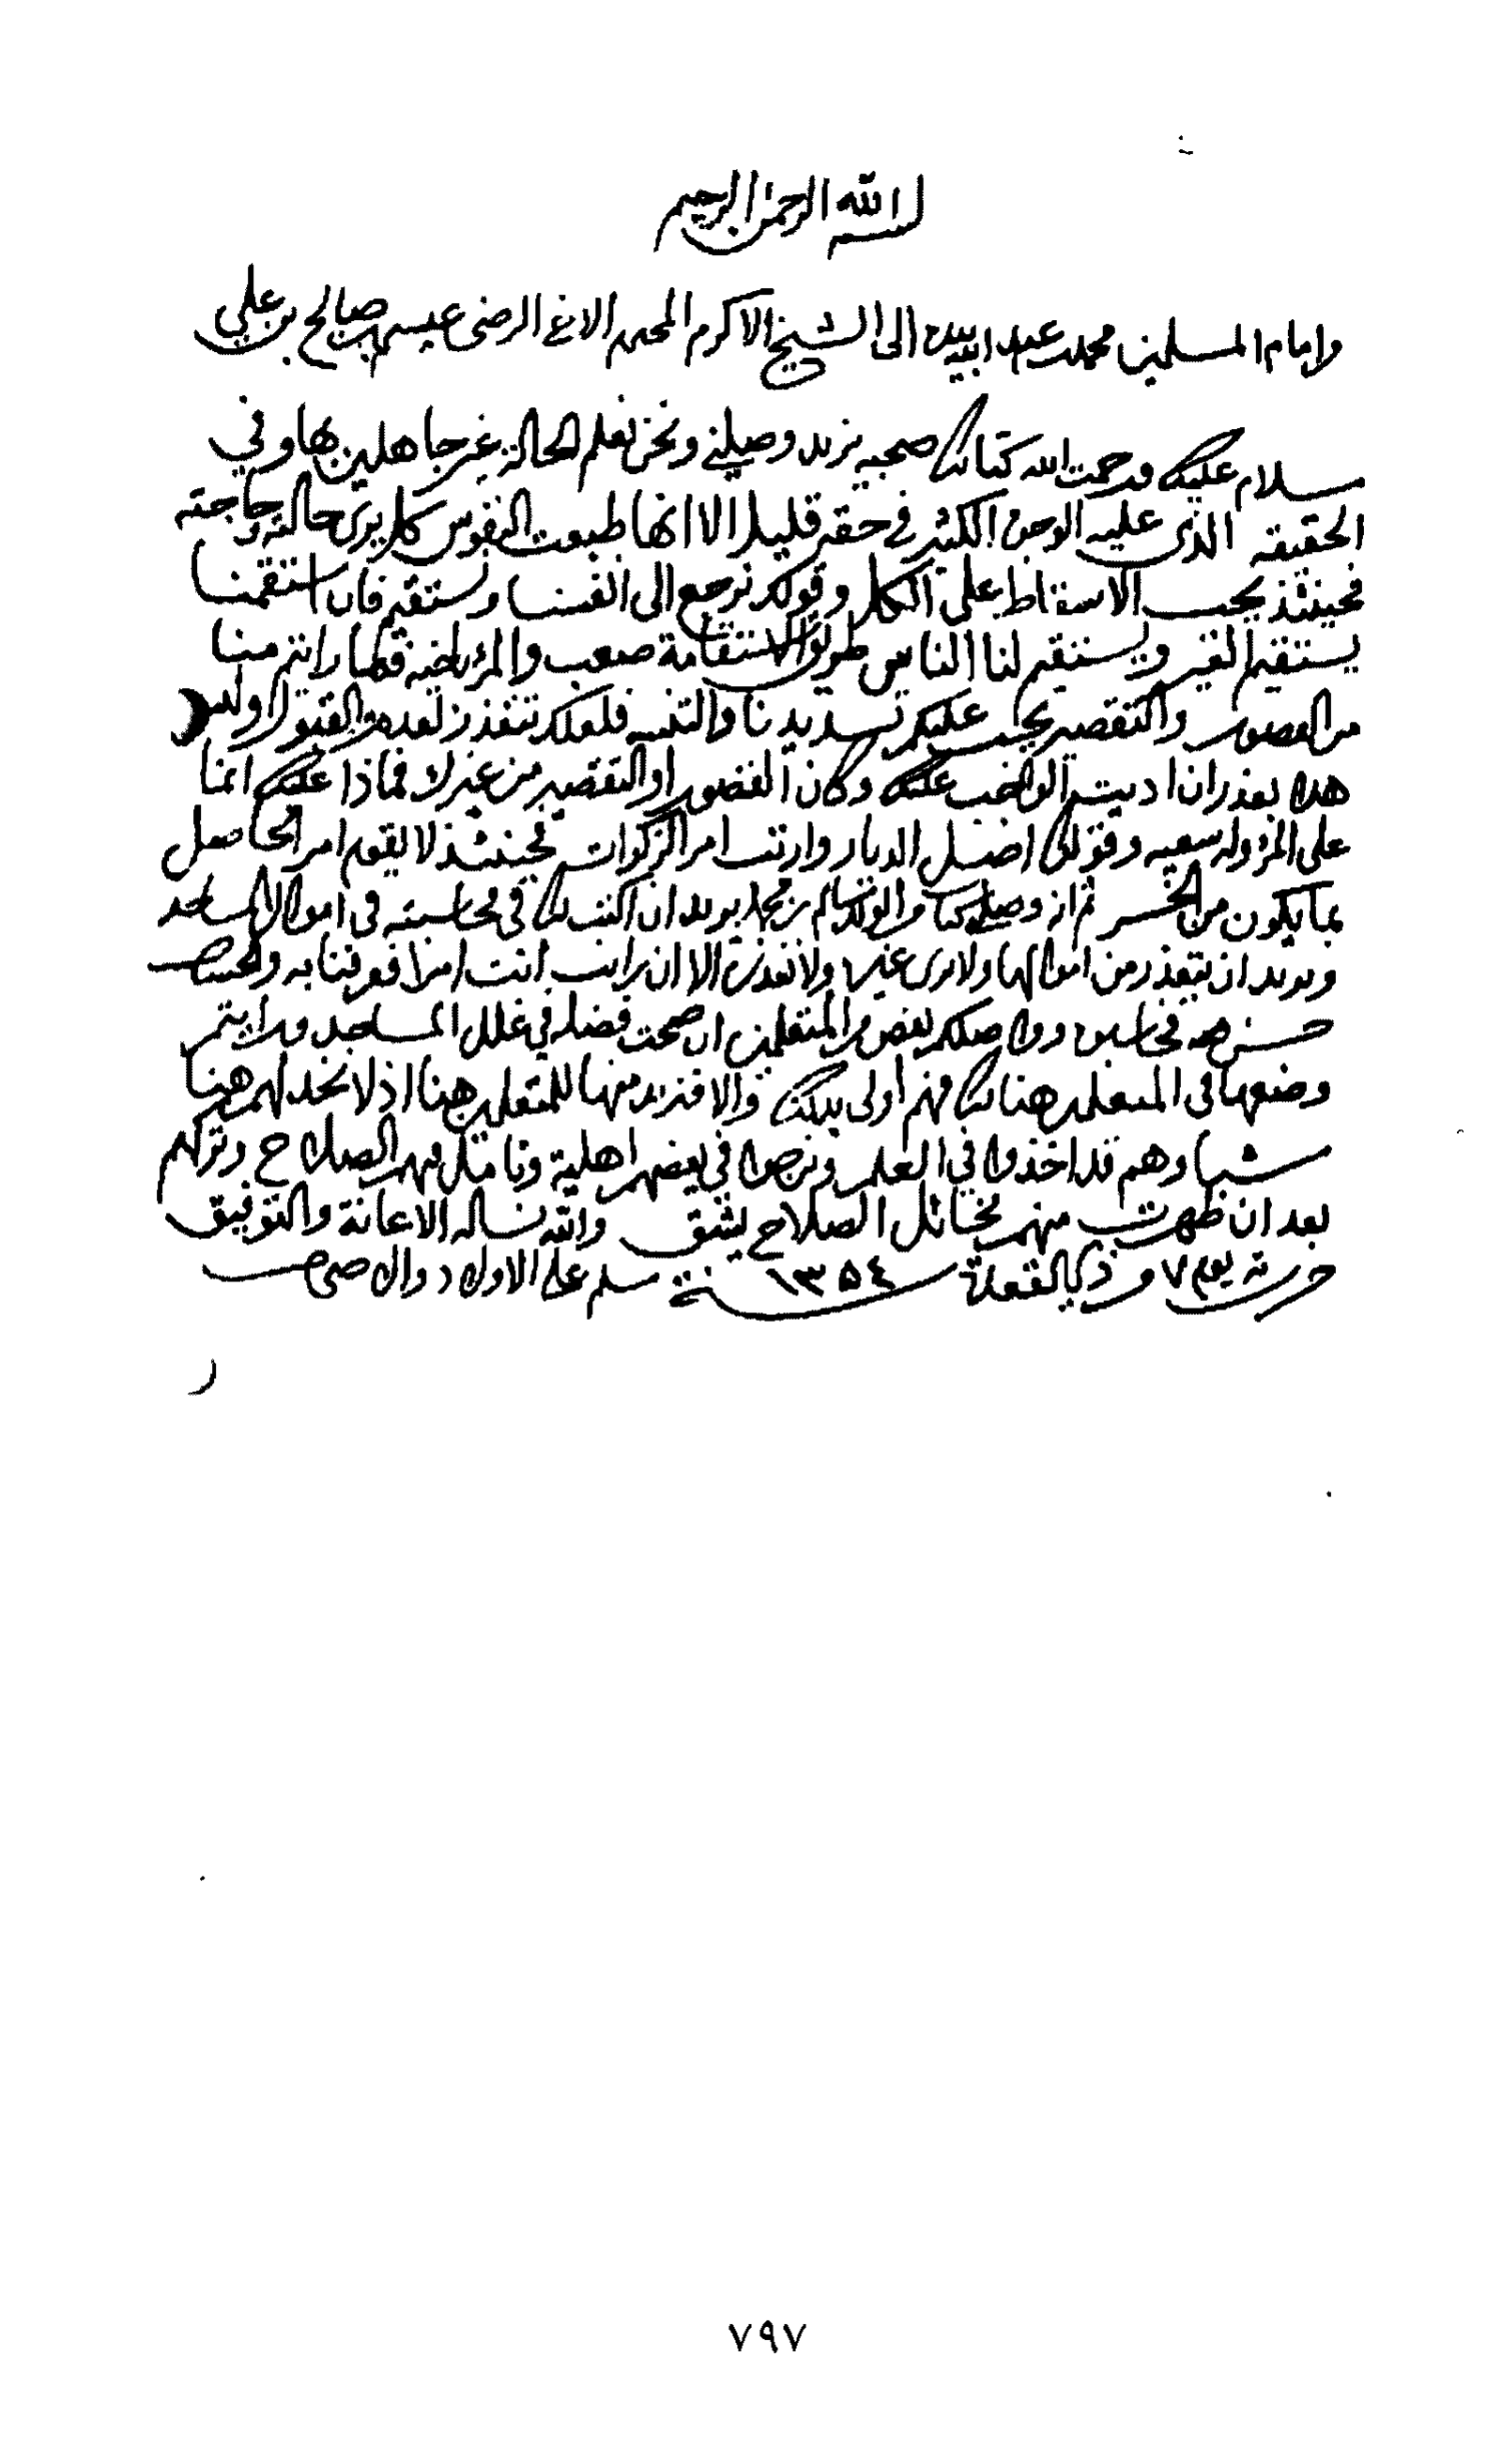 بسم الله الرحمن الرحيم
من امام المسلمين محمد بن عبدالله الى الشيخ الاكرم المحب الاخ الرضي عيسى بن صالح بن علي
سلام عليك ورحمت الله كتابك صحبه يزيد وصلني ونحن نعلم الحالة غير جاهلين بها وفي
الحقيقه الذي عليه الوجه الكثير في حقه قليلا الا انها طبعت النفوس كل يرى حاله وحاجته
فحينئذ يجب الاسقاط على الكل وقولكم نرجع الى انفسنا ونستقيم فان استقمنا
يستقيم الغير ويستقيم لنا الناس طريق الاستقامة صعب والمر فكلما رايتم منا
من القصور والتقصير يجب عليكم تسديدنا والتنبيه فلعلكم تتعذر لعدم القبول اوليس
هذا بعذر ان اديتم الواجب عليك وكان القصور او التقصير من غيرك فماذا عليك انما
على المرء سعيه وقولك اضل الديار وارتب امر الزكوات فحينئذ لا يقوم امر الحاصل
بما يكون من الخسر ثم انه وصلني كتاب من الولد سالم بن محمد يريد ان اكتب لك في محاسبته في اموال المساجد
ويريد ان يتعذر من اموالها ولا نرى غيره ولا نعذره الا ان رايت انت امرا فعرفنا به
حسن وواصلكم بعض من المتعلمين ان صحت فضله في غلل المساجد ورايتم
وضعها في المتعلمين هناك فهم اولى بذلك والا فنريد منها للمتعلمين هنا اذ لا نجد لهم هنا
شيا وهم قد اخذوا في العلم ونرجوا في بعضهم اهلية ونامل فيهم الصلاح وتركهم
بعد ان ظهرت منهم مخائل الصلاح يشق والله نساله الاعانة والتوفيق
حرر يوم ٧ من ذي القعدة سنة ١٣٥٤ سلم على الاولاد
٧٩٧